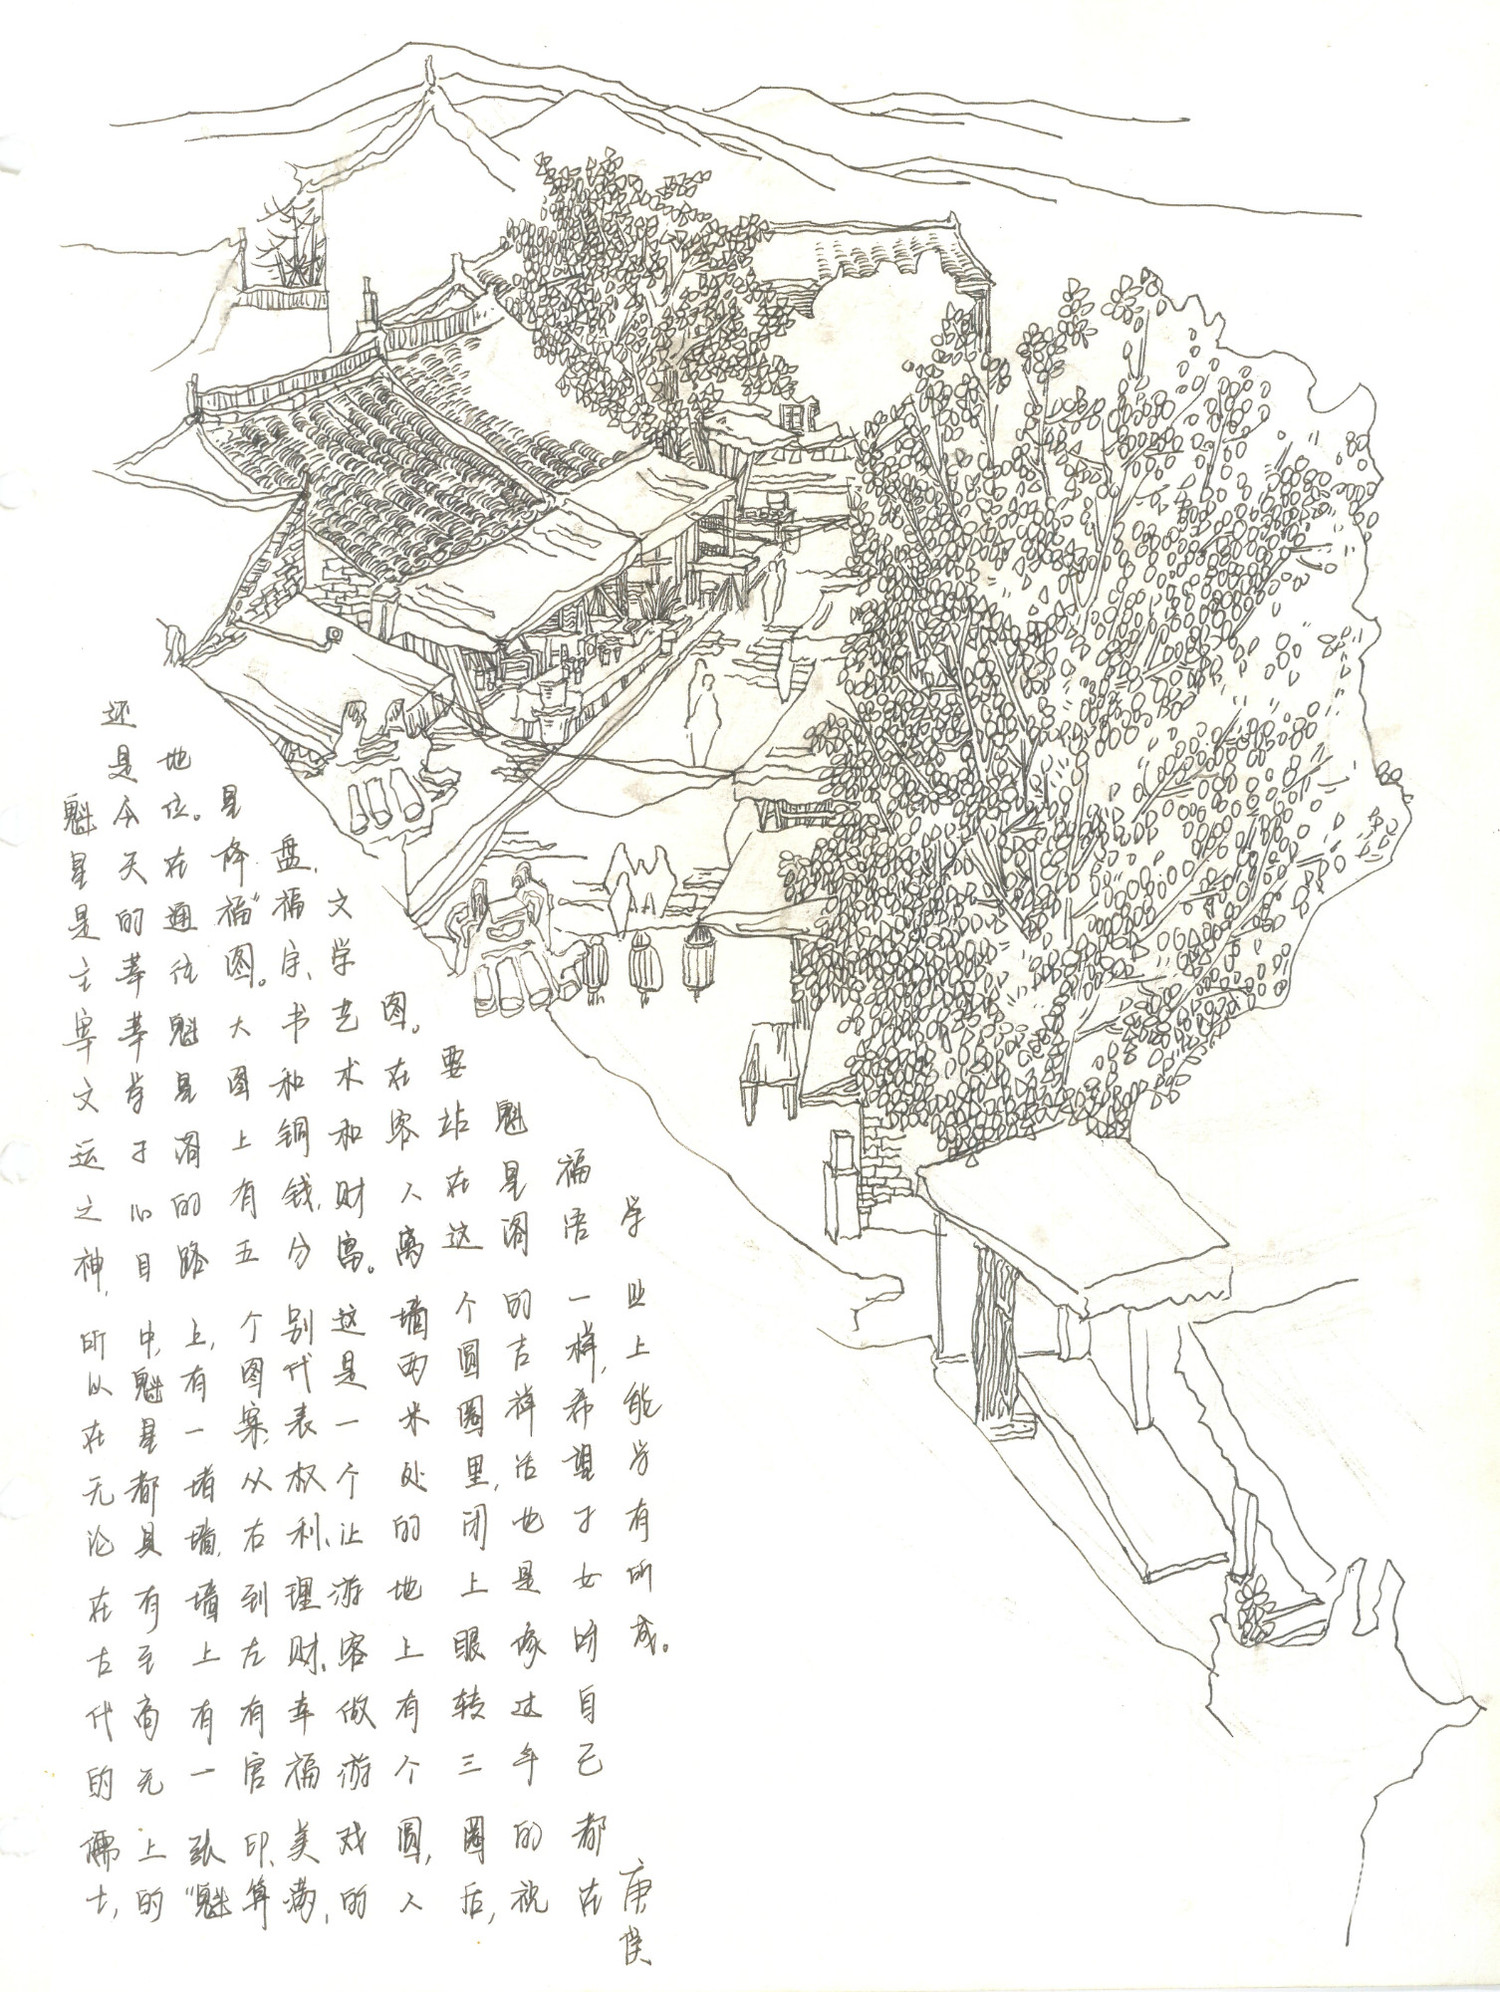 魁星是主宰文运之神，所以在无论在古代的儒士，
还是今天的莘莘学子心目中，魁星都具有至高无上的
地位。在通往魁星阁的路上，有一堵墙，墙上有一张“魁
星降福”图。大图上有五个图案，从右到左有官印、算
盘、福字、书和铜钱，分别代表权利、理财、幸福美满、
文学艺术和财富。这是一个让游客做游戏的
图。在客人离墙两米处的地上有个圆，人
要站在这个圆圈里，闭上眼转三圈后，
魁星阁的吉祥话也是像过年的祝
福语一样，希望子女自己都在
学业上能学有所成。
庚侯